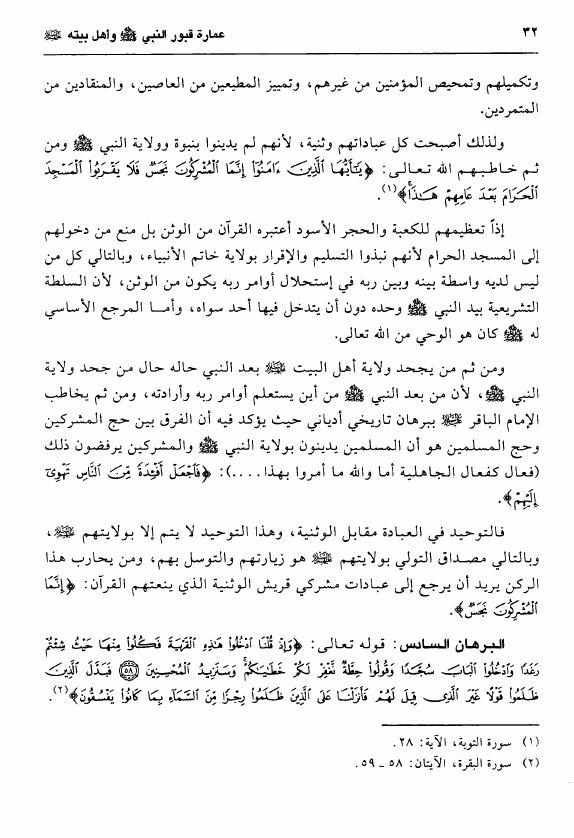 ٣٢ عمارة قبور النبي ﷺ وأهل بيته ﷺ
وتكميلهم وتمحيص المؤمنين من غيرهم، وتمييز المطيعين من العاصين، والمنقادين من
المتمردين.
ولذلك أصبحت كل عباداتهم وثنية، لأنهم لم يدينوا بنبوة وولاية النبي ﷺ ومن
ثم خاطبهم الله تعالى: ﴿يَٰٓأَيُّهَا ٱلَّذِينَ ءَامَنُوٓا۟ إِنَّمَا ٱلْمُشْرِكُونَ نَجَسٌ فَلَا يَقْرَبُوا۟ ٱلْمَسْجِدَ
ٱلْحَرَامَ بَعْدَ عَامِهِمْ هَٰذَا﴾(١).
إذاً تعظيمهم للكعبة والحجر الأسود أعتبره القرآن من الوثن بل منع من دخولهم
إلى المسجد الحرام لأنهم نبذوا التسليم والإقرار بولاية خاتم الأنبياء، وبالتالي كل من
ليس لديه واسطة بينه وبين ربه في إستحلال أوامر ربه يكون من الوثن، لأن السلطة
التشريعية بيد النبي ﷺ وحده دون أن يتدخل فيها أحد سواه، وأما المرجع الأساسي
له ﷺ كان هو الوحي من الله تعالى.
ومن ثم من يجحد ولاية أهل البيت بعد النبي حاله حال من جحد ولاية
النبي ﷺ، لأن من بعد النبي ﷺ من أين يستعلم أوامر ربه وأرادته، ومن ثم يخاطب
الإمام الباقر ببرهان تاريخي أدياني حيث يؤكد فيه أن الفرق بين حج المشركين
وحج المسلمين هو أن المسلمين يدينون بولاية النبي ﷺ والمشركين يرفضون ذلك
(فعال كفعال الجاهلية أما والله ما أمروا بهذا....): ﴿فَٱجْعَلْ أَفْـِٔدَةً مِّنَ ٱلنَّاسِ تَهْوِىٓ
إِلَيْهِمْ﴾.
فالتوحيد في العبادة مقابل الوثنية، وهذا التوحيد لا يتم إلا بولايتهم ،
وبالتالي مصداق التولي بولايتهم هو زيارتهم والتوسل بهم، ومن يحارب هذا
الركن يريد أن يرجع إلى عبادات مشركي قريش الوثنية الذي ينعتهم القرآن: ﴿إِنَّمَا
ٱلْمُشْرِكُونَ نَجَسٌ﴾.
البرهان السادس: قوله تعالى: ﴿وَإِذْ قُلْنَا ٱدْخُلُوا۟ هَٰذِهِ ٱلْقَرْيَةَ فَكُلُوا۟ مِنْهَا حَيْثُ شِئْتُمْ
رَغَدًا وَٱدْخُلُوا۟ ٱلْبَابَ سُجَّدًا وَقُولُوا۟ حِطَّةٌ نَّغْفِرْ لَكُمْ خَطَٰيَٰكُمْ ۚ وَسَنَزِيدُ ٱلْمُحْسِنِينَ ۝٥٨ فَبَدَّلَ ٱلَّذِينَ
ظَلَمُوا۟ قَوْلًا غَيْرَ ٱلَّذِى قِيلَ لَهُمْ فَأَنزَلْنَا عَلَى ٱلَّذِينَ ظَلَمُوا۟ رِجْزًا مِّنَ ٱلسَّمَآءِ بِمَا كَانُوا۟ يَفْسُقُونَ﴾(٢).
(١) سورة التوبة، الآية: ٢٨.
(٢) سورة البقرة، الآيتان: ٥٨ ـ ٥٩.